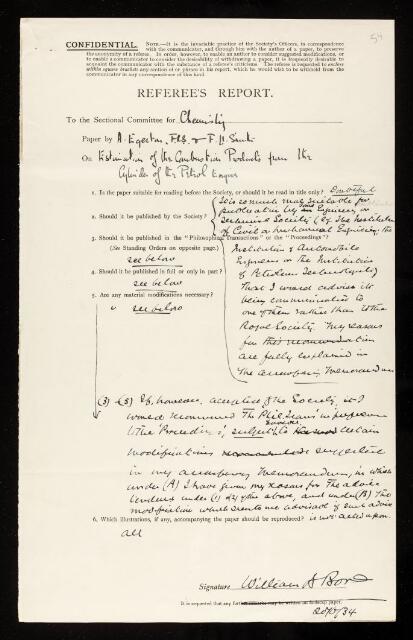 54
CONFIDENTIAL. NOTE.—It is the invariable practice of the Society's Officers, in correspondence
with the communicator, and through him with the author of a paper, to preserve
the anonymity of a referee. In order, however, to enable an author to consider suggested modifications, or
to enable a communicator to consider the desirability of withdrawing a paper, it is frequently desirable to
acquaint the communicator with the substance of a referee's criticisms. The referee is requested to enclose
within square brackets any section of or phrase in his report, which he would wish to be withheld from the
communicator in any correspondence of this kind.
REFEREE'S REPORT.
To the Sectional Committee for Chemistry
Paper by A. Egerton, F.R.S. & F. H. Smith
On Estimation of the Combustion Products from the
Cylinder of the Petrol Engine
1. Is the paper suitable for reading before the Society, or should it be read in title only? Doubtful
It is so much more suitable for
publication by some Engineering or
Technical Society (eg the Institution
2. Should it be published by the Society?
of Civil or Mechanical Engineers, the
3. Should it be published in the "Philosophical Transactions" or the "Proceedings"?
Institution of Automobile
(See Standing Orders on opposite page.)
Engineers or the Institution
see below
of Petroleum Technologists)
4. Should it be published in full or only in part?
that I would advise its
see below
being communicated to
5. Are any material modifications necessary?
one of them rather than to the
see below
Royal Society. My reasons
for this recommendation
are fully explained in
the accompanying Memorandum
(3) (5) If, however, accepted by the Society, I
would recommend the Phil. Trans. in preference
to the Proceedings, subject to certain
however
modifications suggested
in my accompanying Memorandum, in which
under (A) I have given my reasons for the advice
tendered under (1) & (2) of the above, and under (B) the
modifications which seem to me advisable if such advice
6. Which illustrations, if any, accompanying the paper should be reproduced? is not acted upon.
all
Signature William A Bone
It is requested that any further remarks may be written on foolscap paper.